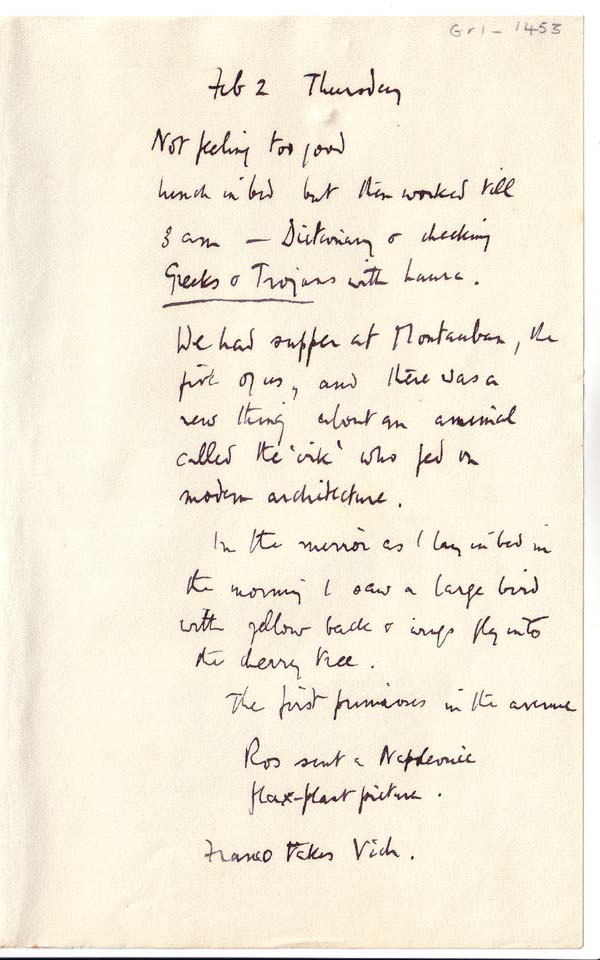 Gri - 1453
Feb 2 Thursday
Not feeling too good
Lunch in bed but then worked till
3 am — Dictionary & checking
Greeks & Trojans with Laura.
We had supper at Montauban, the
five of us, and there was a
new thing about an animal
called the 'vik' who fed on
modern architecture.
In the mirror as I lay in bed in
the morning I saw a large bird
with yellow back & wings fly into
the cherry tree.
The first primroses in the avenue
Ros sent a Napoleonic
flax-plant picture.
Franco takes Vich.